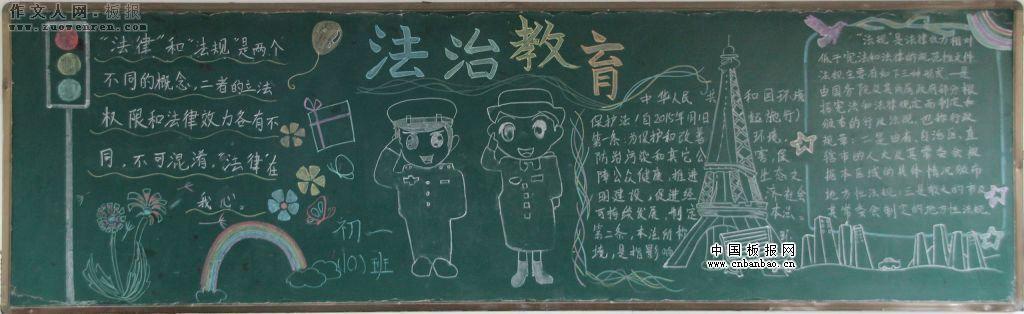 作文人网·板报
www.zuowenren.com
法治教育
"法律"和"法规"是两个
不同的概念,二者的立法
权限和法律效力各有不
同,不可混淆。"法律在
我心。
初一
(10)班
中华人民共和国环境
保护法(自2015年1月1日起施行)
第一条:为保护和改善环境,
防治污染和其它公害,保
障公众健康,推进生态文
明建设,促进经济社会
可持续发展,制定本法。
第二条:本法所称
境,是指影响
"法规"是法律效力相对
低于宪法和法律的规范性文件
法规主要有如下三种形式:一是
由国务院及其所属政府部分根
据宪法和法律规定而制定和
颁布的行政法规,也称行政
规章;二是由省、自治区、直
辖市的人大及其常委会根
据本区域的具体情况颁布
地方性法规;三是较大的市人
及常委会制定的地方性法规
中国板报网
www.cnbanbao.cn